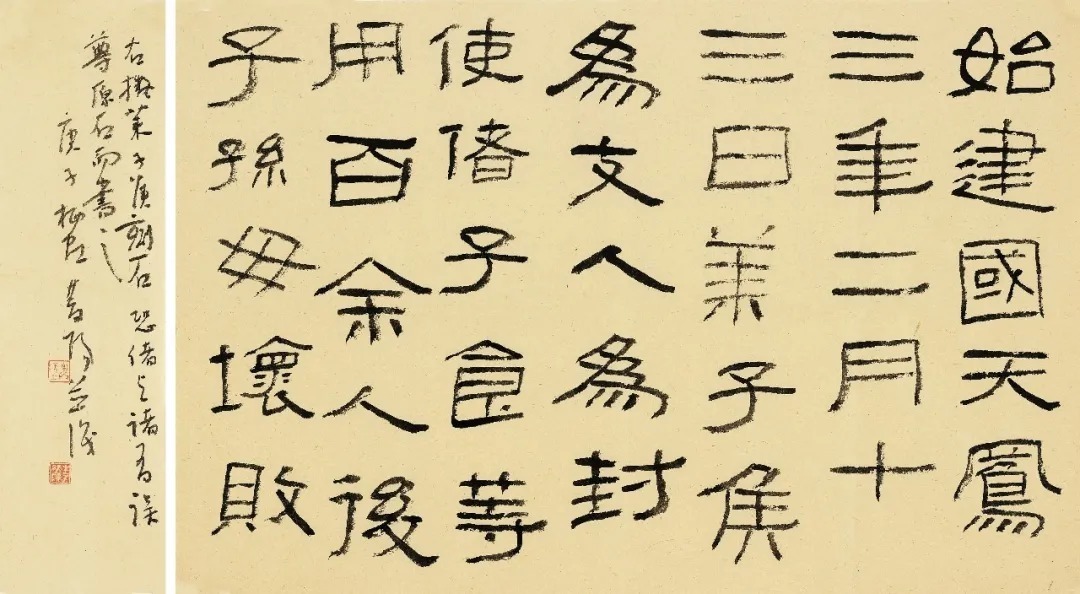 始建國天鳳
三年二月十
三日萊子侯
為支人為封
使偖子食等
用百余人後
子孫毋壞敗
右萊子侯刻石 恐偖与諸有誤
尊原石而書之
庚子